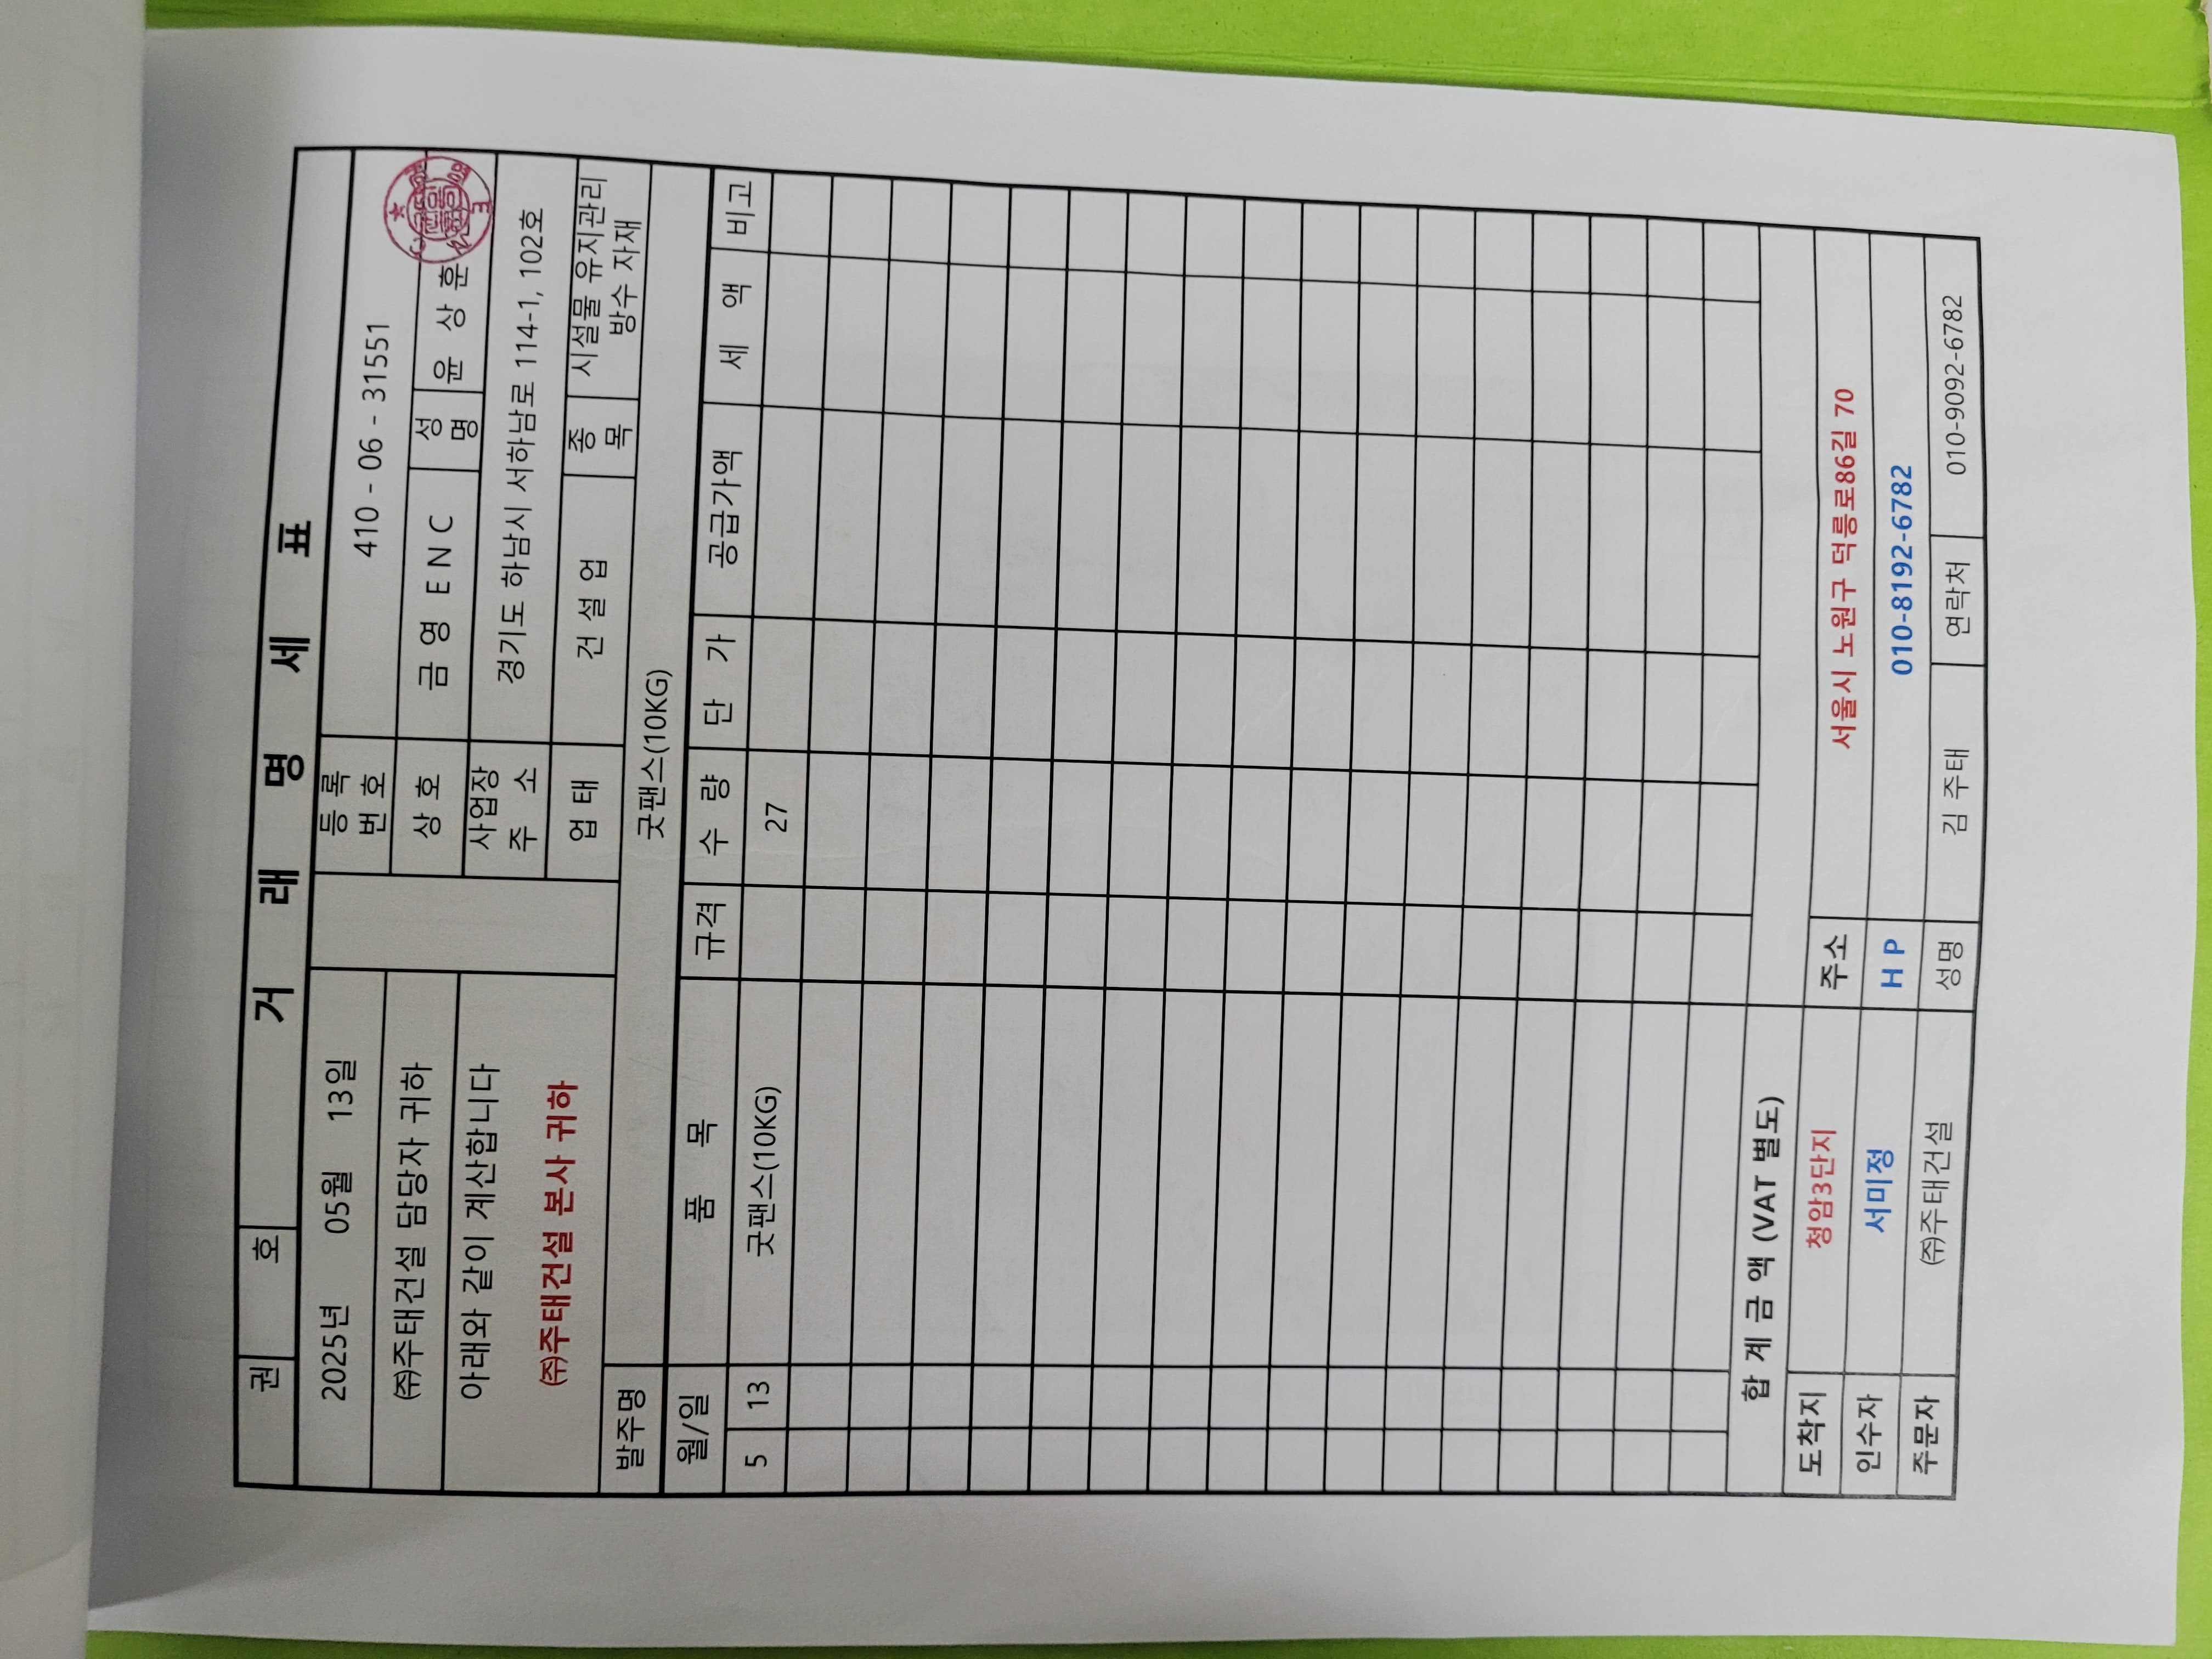 권 호 거 래 명 세 표
2025년 05월 13일 등록번호 410 - 06 - 31551
㈜주태건설 담당자 귀하 상 호 금 영 E N C 성명 윤 상 훈
아래와 같이 계산합니다 사업장주 소 경기도 하남시 서하남로 114-1, 102호
㈜주태건설 본사 귀하 업 태 건 설 업 종목 시설물 유지관리
방수 자재
발주명 굿팬스(10KG)
월/일 품 목 규격 수 량 단 가 공급가액 세 액 비고
5 13 굿팬스(10KG) 27
합 계 금 액 (VAT 별도)
도착지 청암3단지 주소 서울시 노원구 덕릉로86길 70
인수자 서미정 H P 010-8192-6782
주문자 ㈜주태건설 성명 김 주태 연락처 010-9092-6782